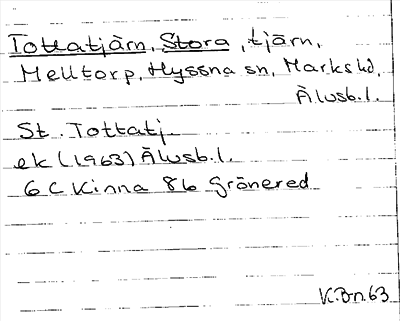 Tottatjärn, Stora, tjärn,
Melltorp, Hyssna sn, Marks hd,
Älvsb.l.
St. Tottatj.
ek (1963) Älvsb.l.
6 C Kinna 8b Grönered
K.Dn.63